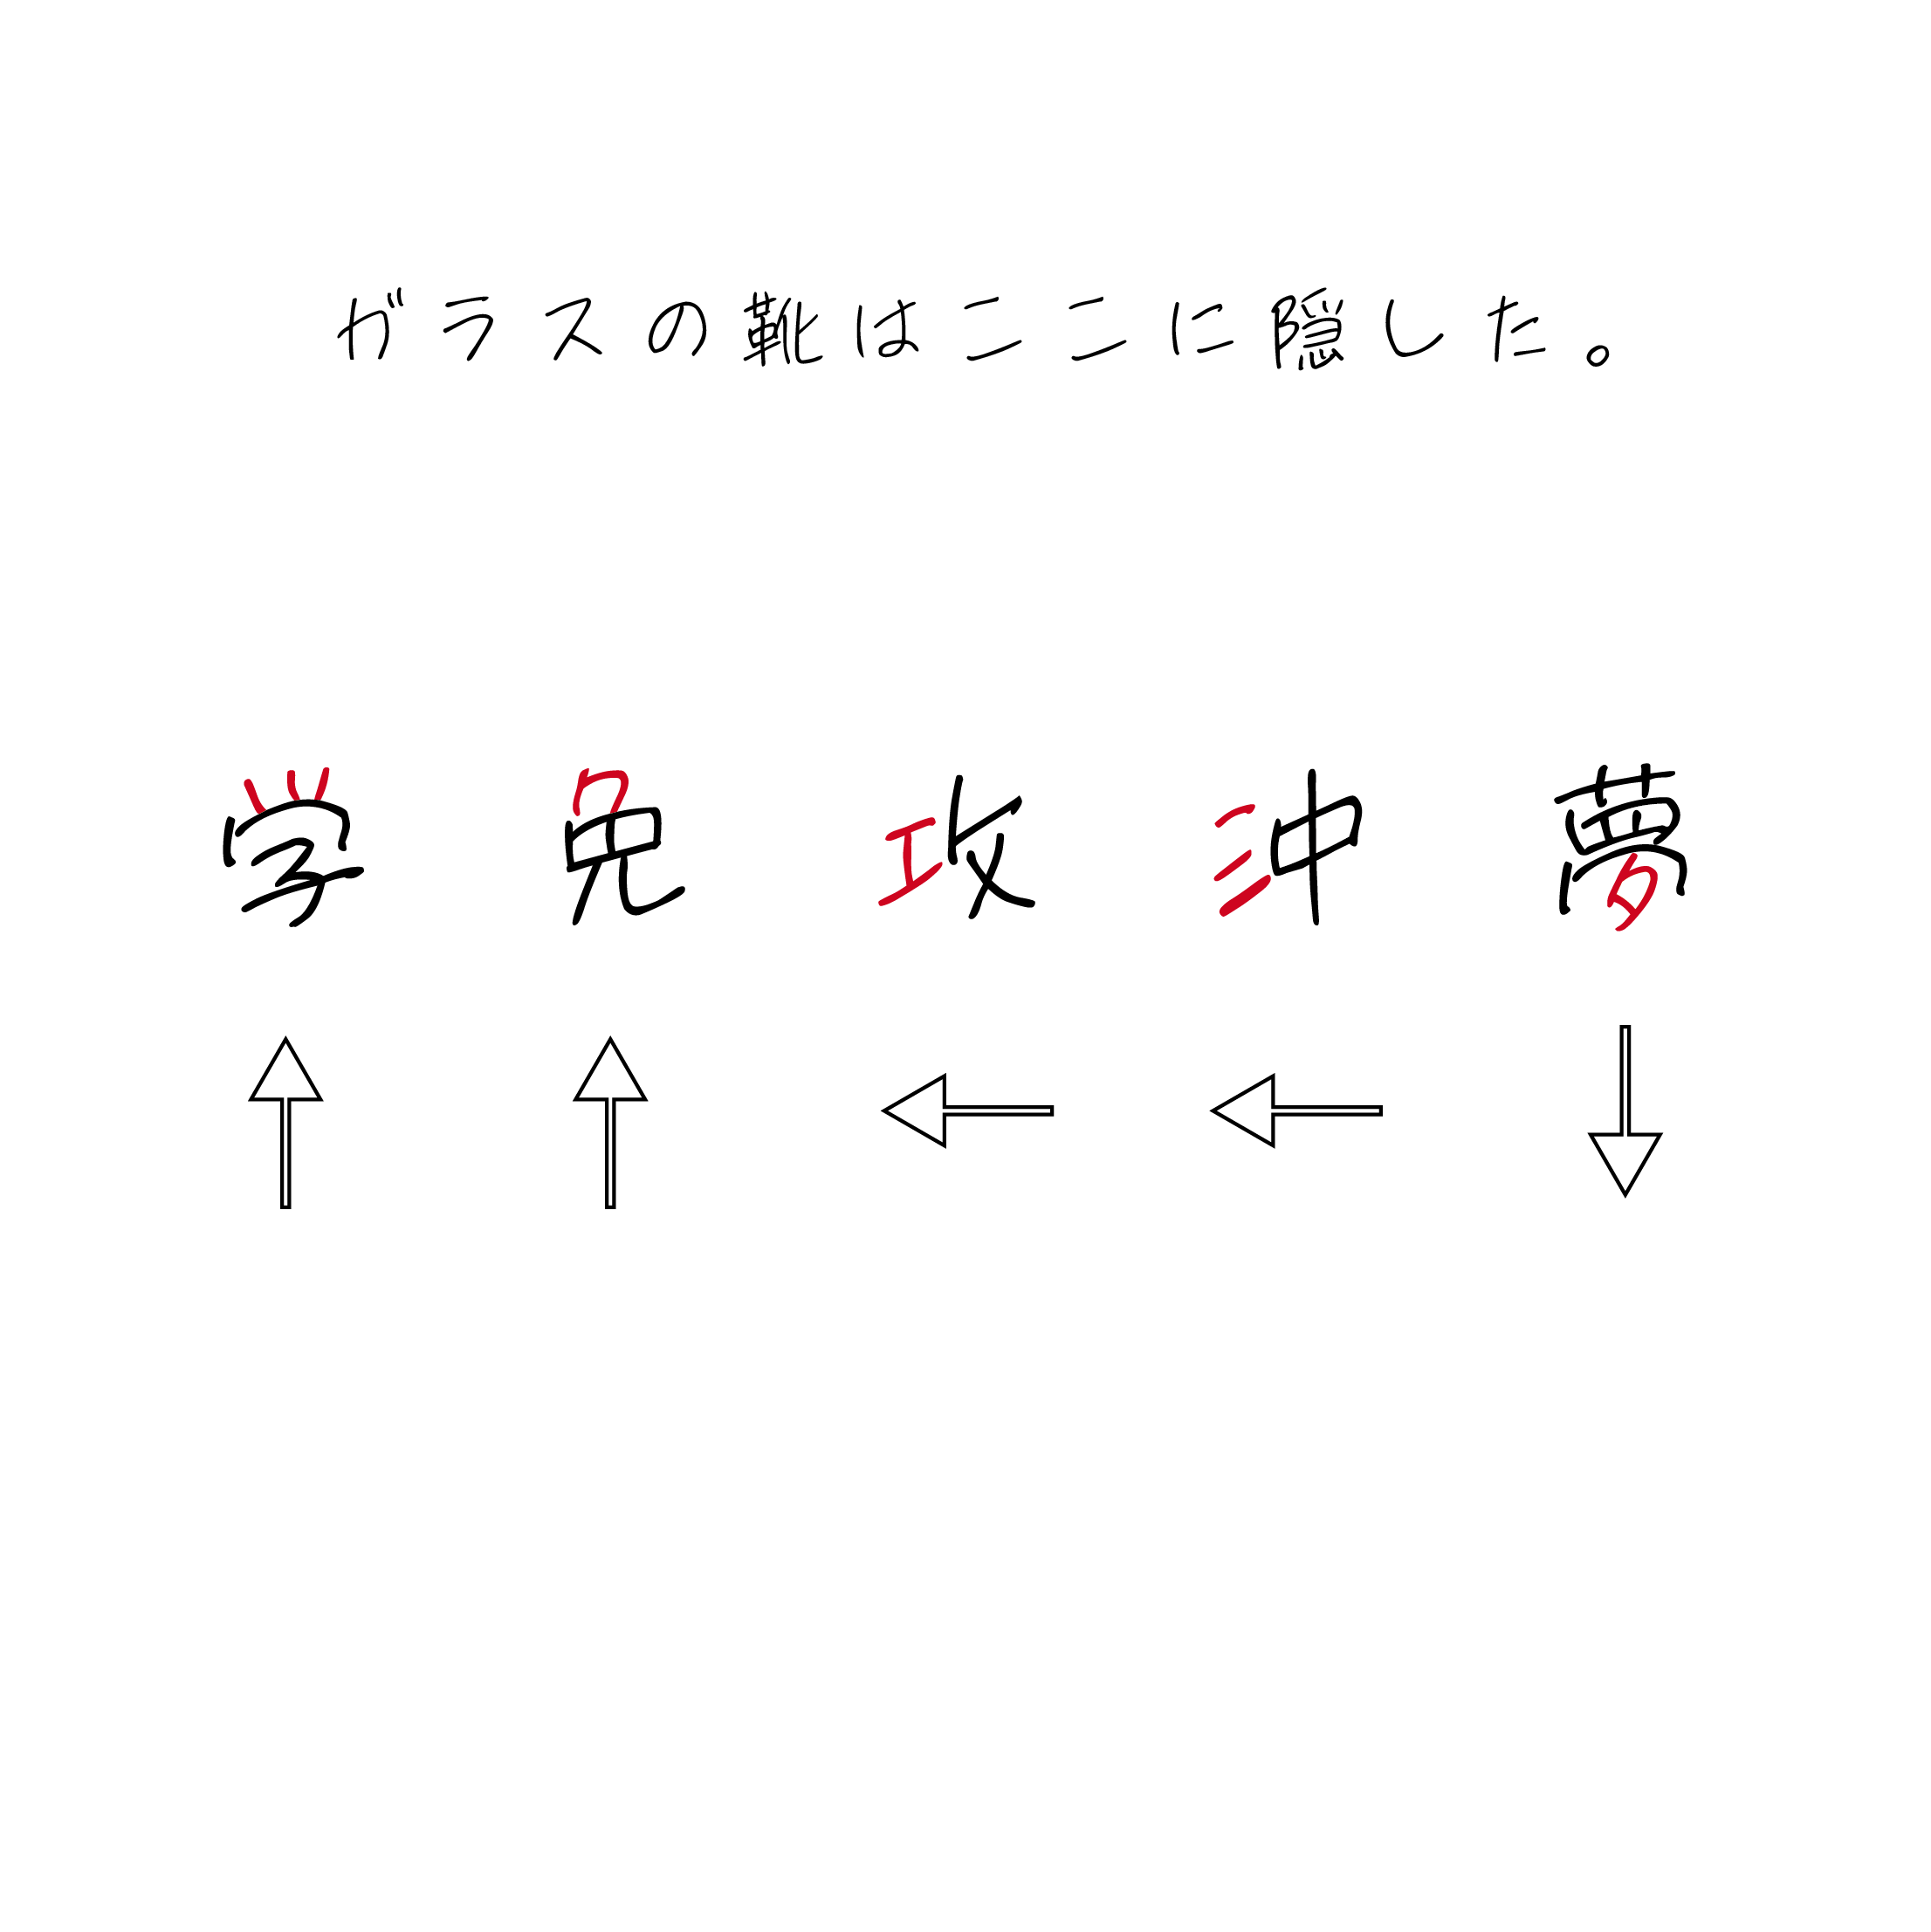 ガラスの靴はここに隠した。
学 免 攻 沖 夢
↑ ↑ ← ← ↓